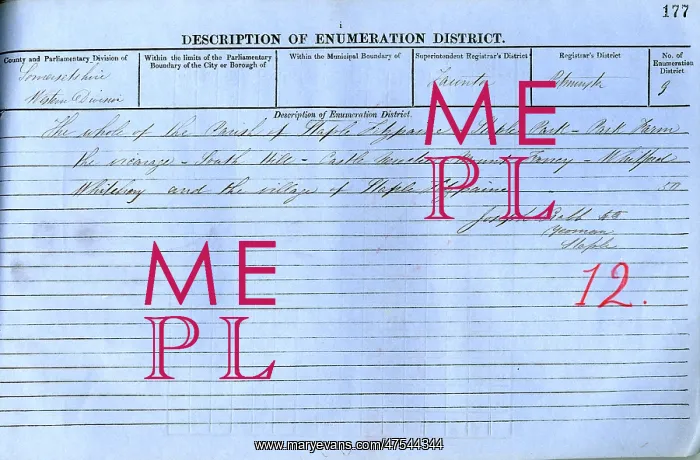 177
i
DESCRIPTION OF ENUMERATION DISTRICT.
County and Parliamentary Division of
Within the limits of the Parliamentary Boundary of the City or Borough of
Within the Municipal Boundary of
Superintendent Registrar's District
Registrar's District
No. of Enumeration District
Somersetshire
Western Division
Taunton
Pitminster
9
Description of Enumeration District.
The whole of the Parish of Staple Fitzpaine Staple Park - Park Farm
the vicarage - South Hill - Castle - Whitford
Whitebury and the village of Staple Fitzpaine
Joseph Babb
Yeoman
Staple
12.
ME
PL
ME
PL
www.maryevans.com/47544344